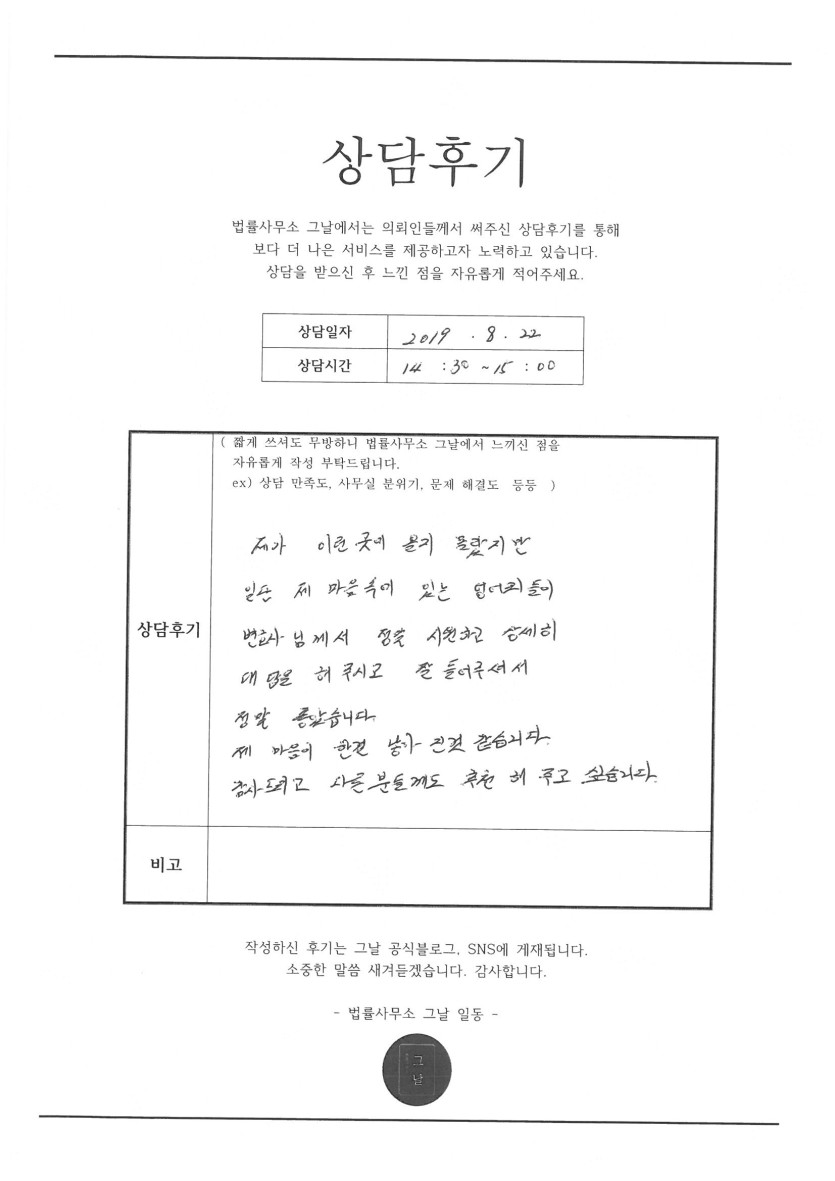 상담후기
법률사무소 그날에서는 의뢰인들께서 써주신 상담후기를 통해
보다 더 나은 서비스를 제공하고자 노력하고 있습니다.
상담을 받으신 후 느낀 점을 자유롭게 적어주세요.
상담일자 2019 . 8 . 22
상담시간 14 : 30 ~ 15 : 00
( 짧게 쓰셔도 무방하니 법률사무소 그날에서 느끼신 점을
자유롭게 작성 부탁드립니다.
ex) 상담 만족도, 사무실 분위기, 문제 해결도 등등 )
상담후기
제가 이런 곳에 올지 몰랐지만
일단 제 마음속에 있는 덩어리들이
변호사님께서 정말 시원하고 상세히
대답을 해 주시고 잘 들어주셔서
정말 좋았습니다.
제 마음이 한결 낳아 진것 같습니다.
감사드리고 다른 분들께도 추천 해 주고 싶습니다.
비고
작성하신 후기는 그날 공식블로그, SNS에 게재됩니다.
소중한 말씀 새겨듣겠습니다. 감사합니다.
- 법률사무소 그날 일동 -
그
날